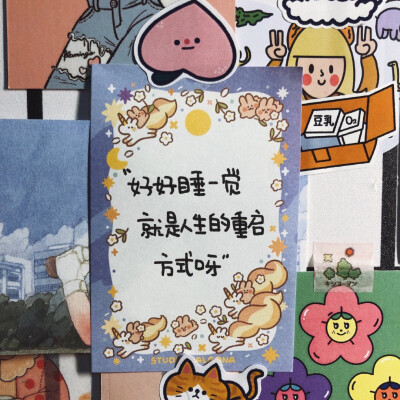 豆乳
“好好睡一觉
就是人生的重启
方式呀”